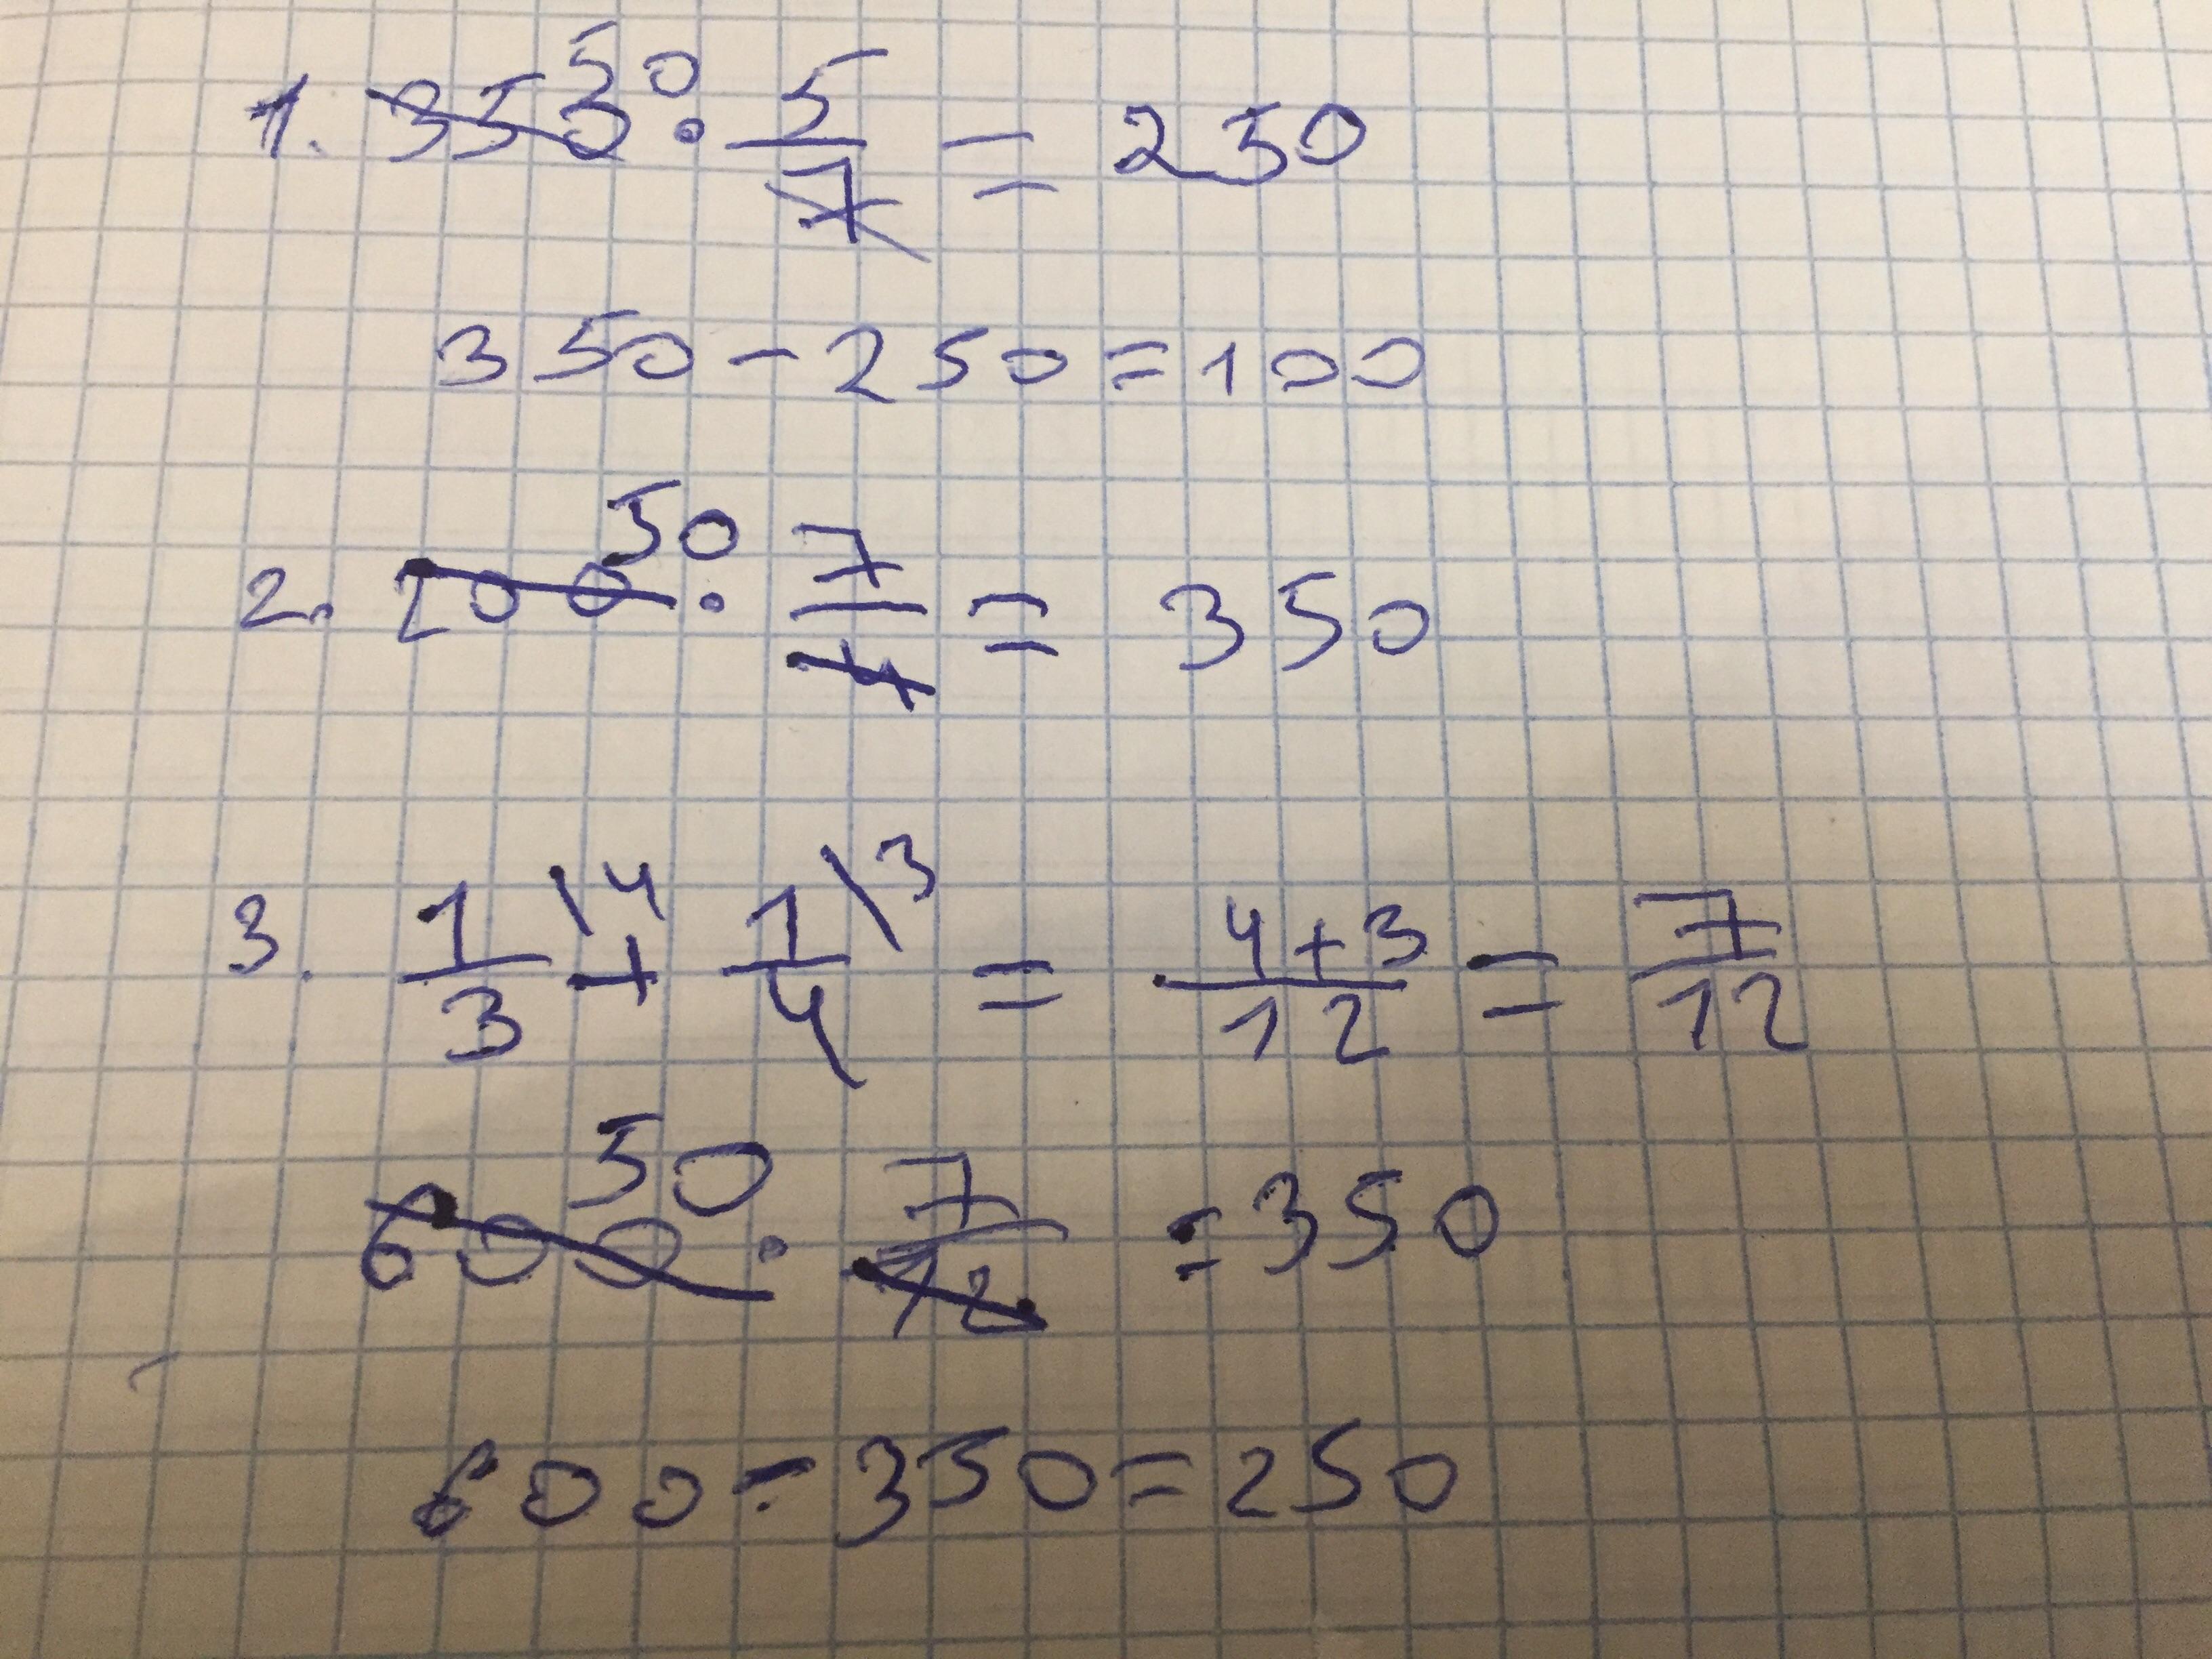 1. 350 50 · 5/7 = 250
350 - 250 = 100
2. 200 50 · 7/4 = 350
3. 1/3 \4 + 1/4 \3 = 4+3/12 = 7/12
600 50 · 7/12 = 350
600 - 350 = 250